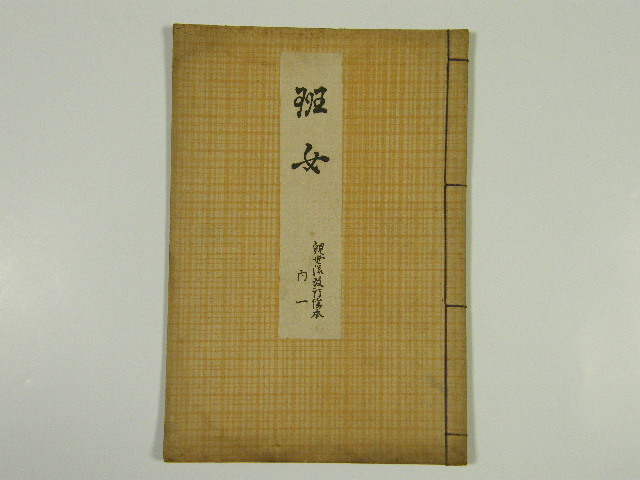 班女
観世流改訂謡本
内一